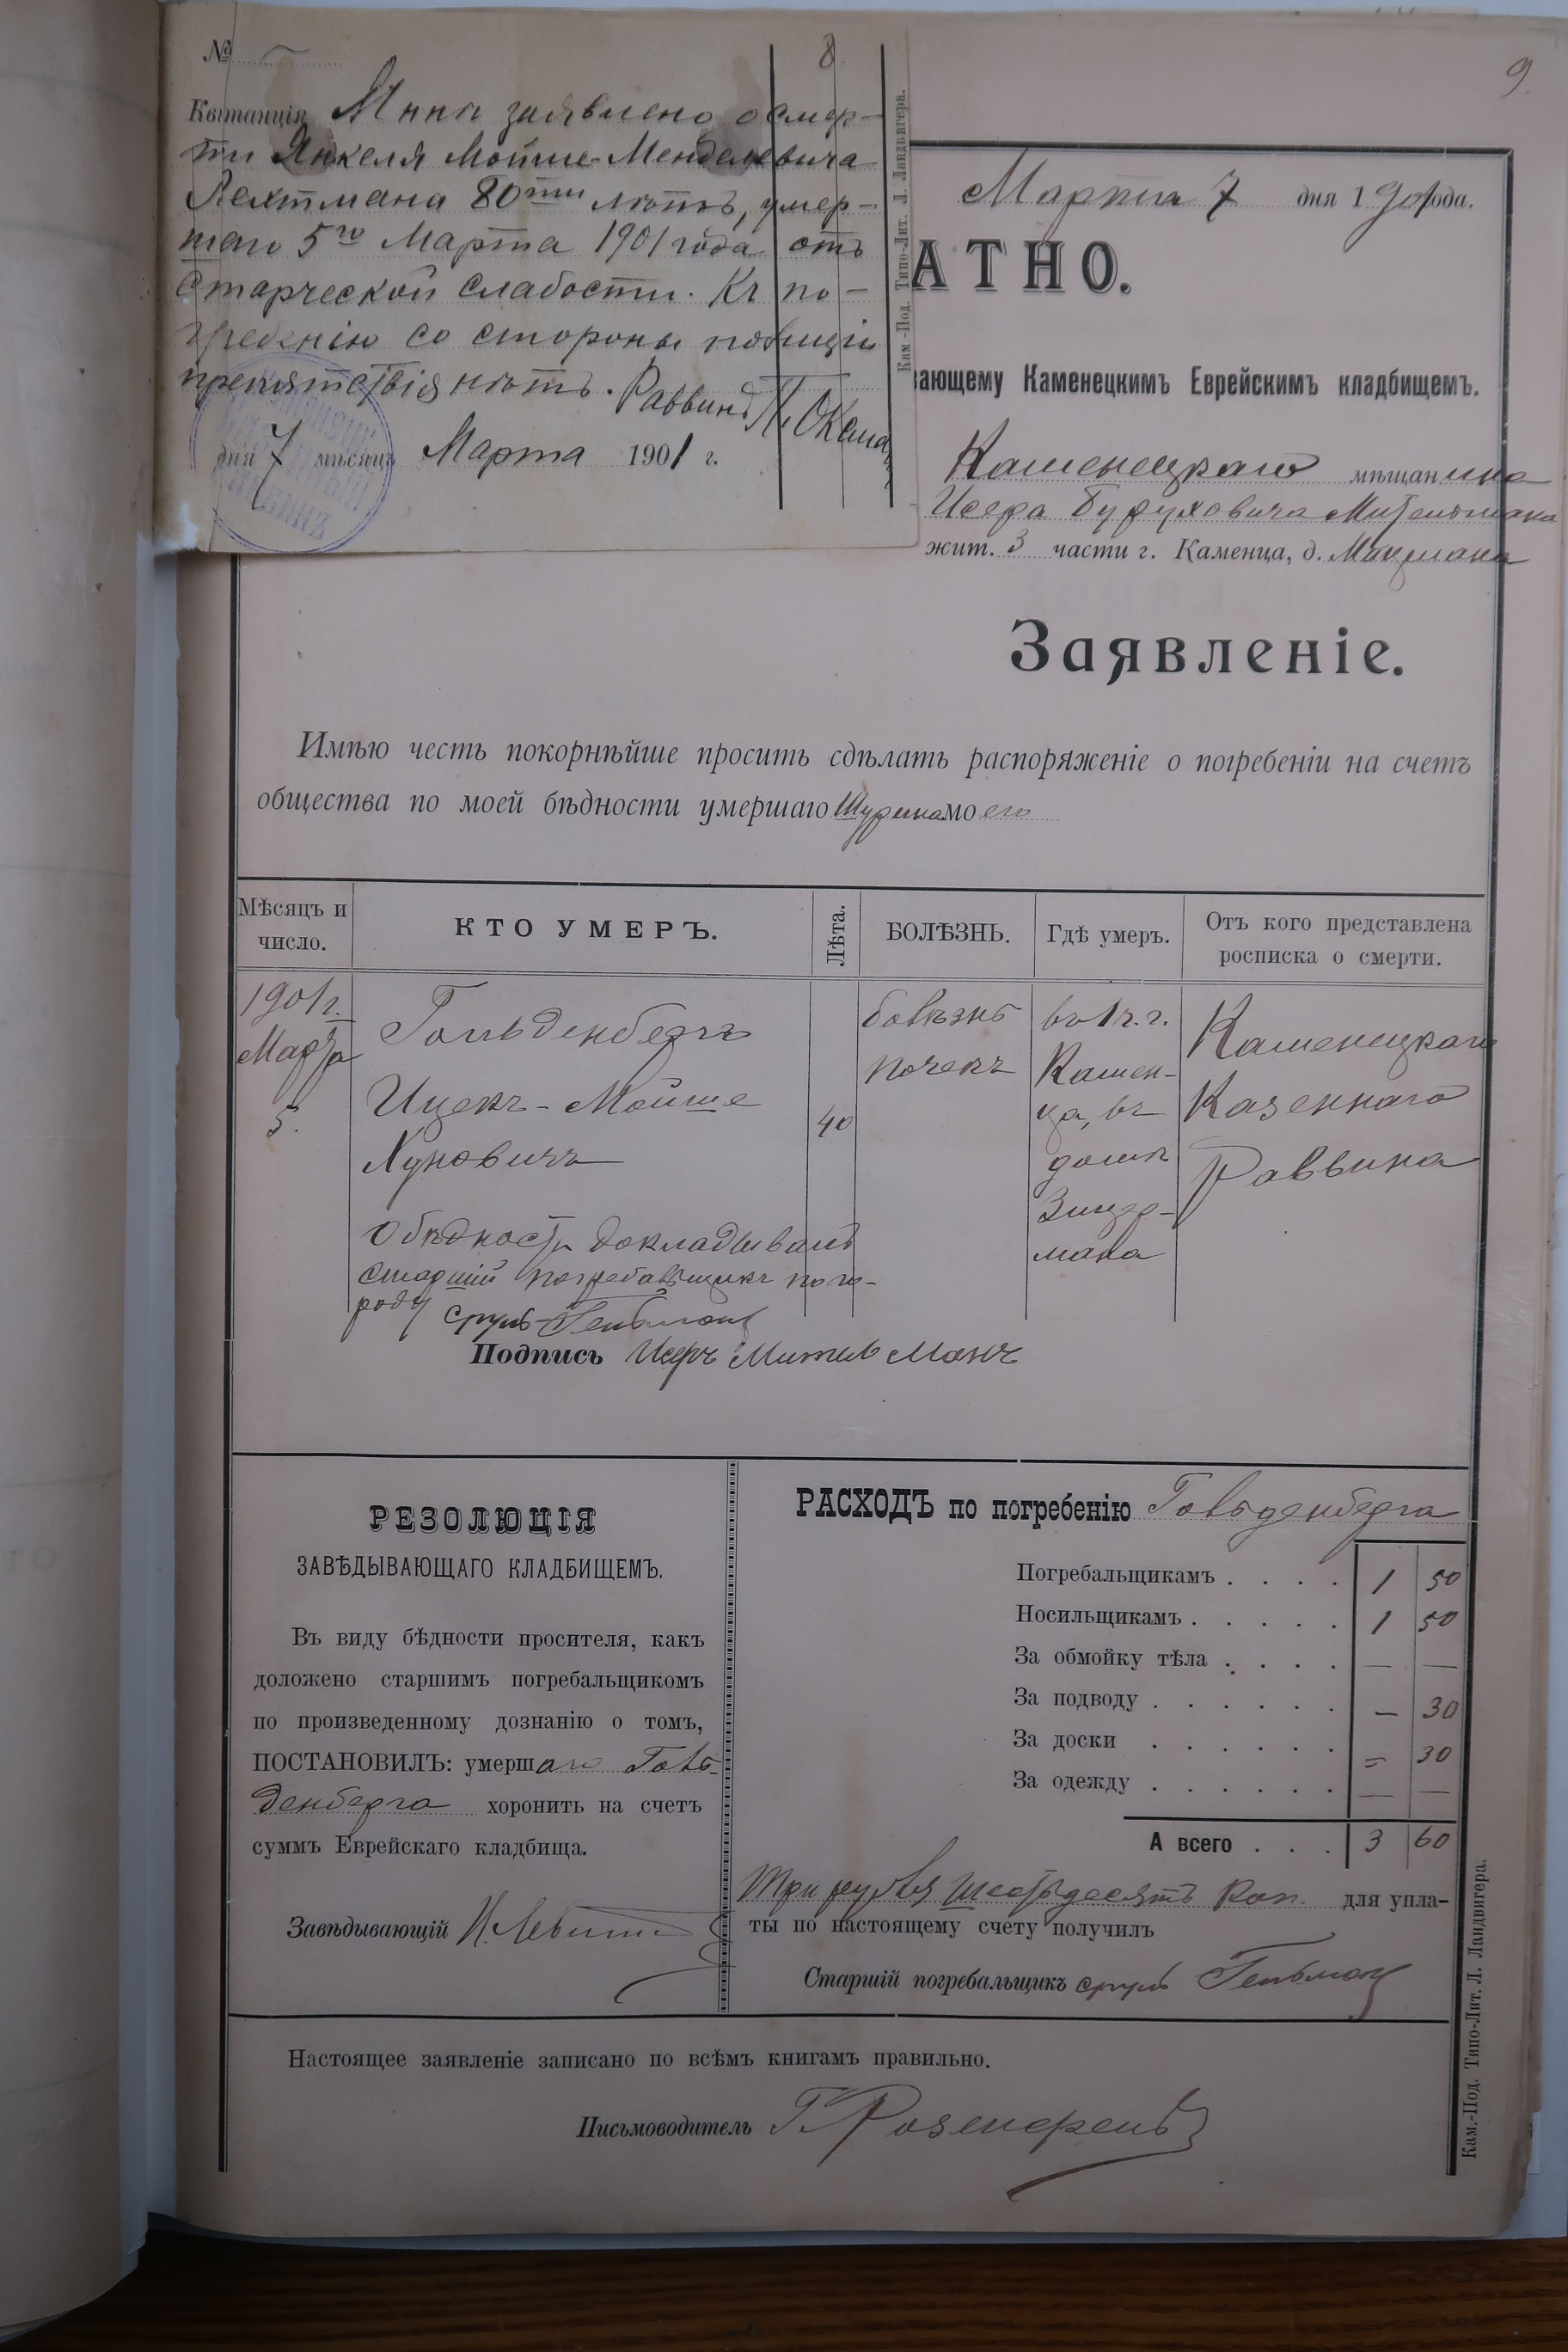 №
8
9
Квитанція Мнѣ заявлено о смер-
ти Янкеля Мойше-Менделевича
Лехтмана 80ти лѣтъ, умер-
шаго 5го Марта 1901 года отъ
старческой слабости. Къ по-
гребенію со стороны полиціи
препятствія нѣтъ. Раввинъ
дня 7 мѣсяцъ Марта 1901 г.
Кам.-Под. Типо-Лит. Л. Ландвигера.
Марта 7 дня 1901 года.
АТНО.
вающему Каменецкимъ Еврейскимъ кладбищемъ.
Каменецкаго мѣщанина
Исера Буруховича Мительмана
жит. 3 части г. Каменца, д.
Заявленіе.
Имѣю честь покорнѣйше просить сдѣлать распоряженіе о погребеніи на счетъ
общества по моей бѣдности умершаго Шурина моего
Мѣсяцъ и число.
КТО УМЕРЪ.
Лѣта.
БОЛѢЗНЬ.
Гдѣ умеръ.
Отъ кого представлена росписка о смерти.
1901 г.
Марта
5.
Гольденбергъ
Ицекъ-Мойше
Хуновичъ
40
болѣзнь
почекъ
въ 1 ч. г.
Камен-
ца, въ
домѣ
Зицер-
мана
Каменецкаго
Казеннаго
Раввина
О бѣдности докладывалъ
старшій погребальщикъ по го-
роду
сруль Гельман
Подпись Исеръ Мительманъ
РЕЗОЛЮЦІЯ
ЗАВѢДЫВАЮЩАГО КЛАДБИЩЕМЪ.
Въ виду бѣдности просителя, какъ
доложено старшимъ погребальщикомъ
по произведенному дознанію о томъ,
ПОСТАНОВИЛЪ: умершаго Голь-
денберга хоронить на счетъ
суммъ Еврейскаго кладбища.
Завѣдывающій
РАСХОДЪ по погребенію Гольденберга
Погребальщикамъ . . . . 1 50
Носильщикамъ . . . . . 1 50
За обмойку тѣла . . . . — —
За подводу . . . . . . — 30
За доски . . . . . . = 30
За одежду . . . . . . — —
А всего . . . 3 60
Три рубля шестьдесятъ коп. для упла-
ты по настоящему счету получилъ
Старшій погребальщикъ сруль Гельман
Настоящее заявленіе записано по всѣмъ книгамъ правильно.
Письмоводитель
Кам.-Под. Типо-Лит. Л. Ландвигера.